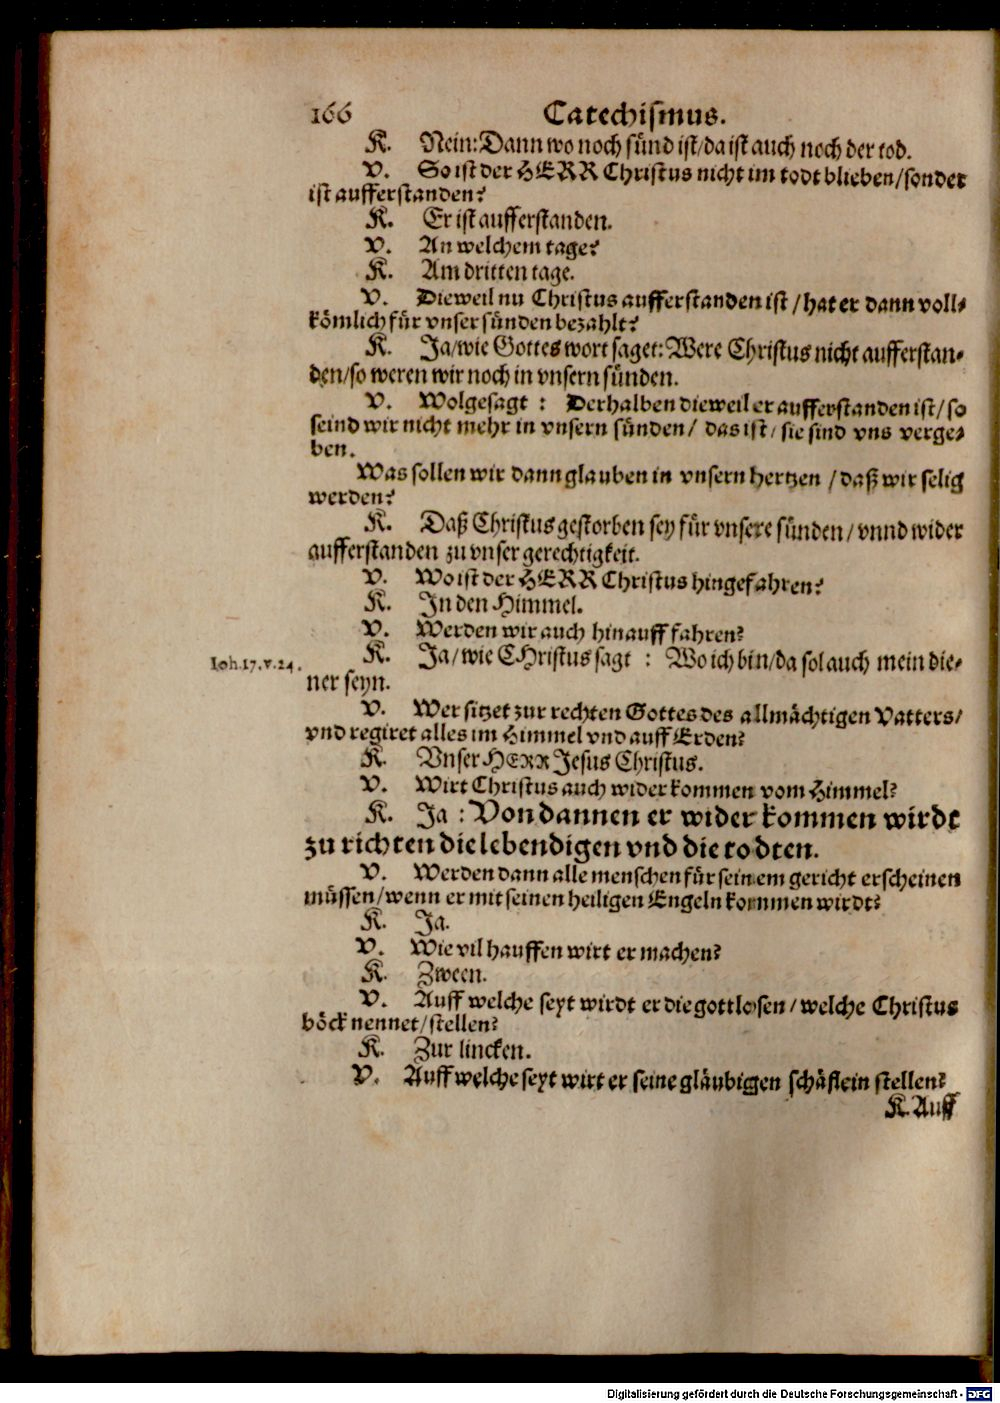 166 Catechismus.
K. Nein: Dann wo noch sünd ist/ da ist auch noch der tod.
V. So ist der HERR Christus nicht im todt blieben/ sonder
ist aufferstanden?
K. Er ist aufferstanden.
V. An welchem tage?
K. Am dritten tage.
V. Dieweil nu Christus aufferstanden ist / hat er dann voll-
kömlich für vnser sünden bezahlt?
K. Ja/ wie Gottes wort saget: Were Christus nicht aufferstan-
den/ so weren wir noch in vnsern sünden.
V. Wolgesagt : Derhalben dieweil er aufferstanden ist/ so
seind wir nicht mehr in vnsern sünden/ das ist/ sie sind vns verge-
ben.
Was sollen wir dann glauben in vnsern hertzen / daß wir selig
werden?
K. Daß Christus gestorben sey für vnsere sünden/ vnnd wider
aufferstanden zu vnser gerechtigkeit.
V. Wo ist der HERR Christus hingefahren?
K. In den Himmel.
V. Werden wir auch hinauff fahren?
Ioh. 17. v. 24. K. Ja/ wie CHristus sagt : Wo ich bin/ da sol auch mein die-
ner seyn.
V. Wer sitzet zur rechten Gottes des allmächtigen Vatters/
vnd regiret alles im Himmel vnd auff Erden?
K. Vnser HERR Jesus Christus.
V. Wirt Christus auch wider kommen vom Himmel?
K. Ja : Von dannen er wider kommen wirdt
zu richten die lebendigen vnd die todten.
V. Werden dann alle menschen für seinem gericht erscheinen
müssen/ wenn er mit seinen heiligen Engeln kommen wirdt?
K. Ja.
V. Wie vil hauffen wirt er machen?
K. Zween.
V. Auff welche seyt wirdt er die gottlosen/ welche Christus
böck nennet/ stellen?
K. Zur lincken.
V. Auff welche seyt wirt er seine gläubigen schäflein stellen?
K. Auff
Digitalisierung gefördert durch die Deutsche Forschungsgemeinschaft - DFG